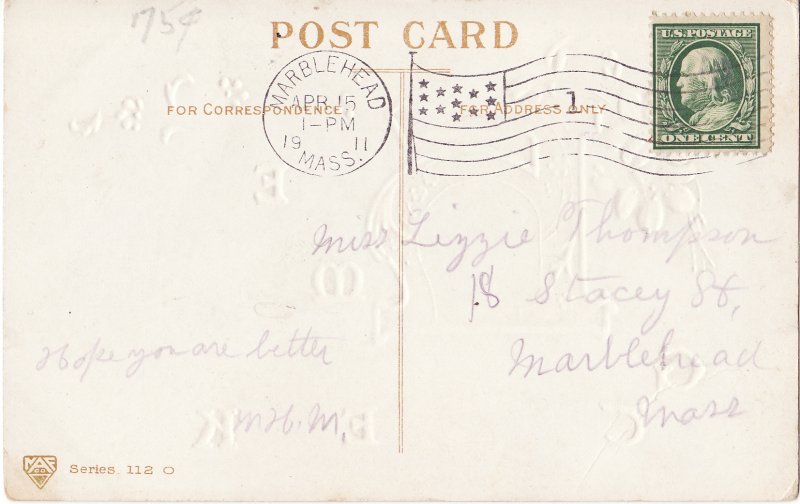 175¢
POST CARD
U.S. POSTAGE
ONE CENT
MARBLEHEAD
APR 15
1-PM
19 11
MASS.
1
FOR CORRESPONDENCE
FOR ADDRESS ONLY
Miss Lizzie Thompson
18 Stacey St,
Marblehead
Mass
Hope you are better
M.H.M.
Series 112 O